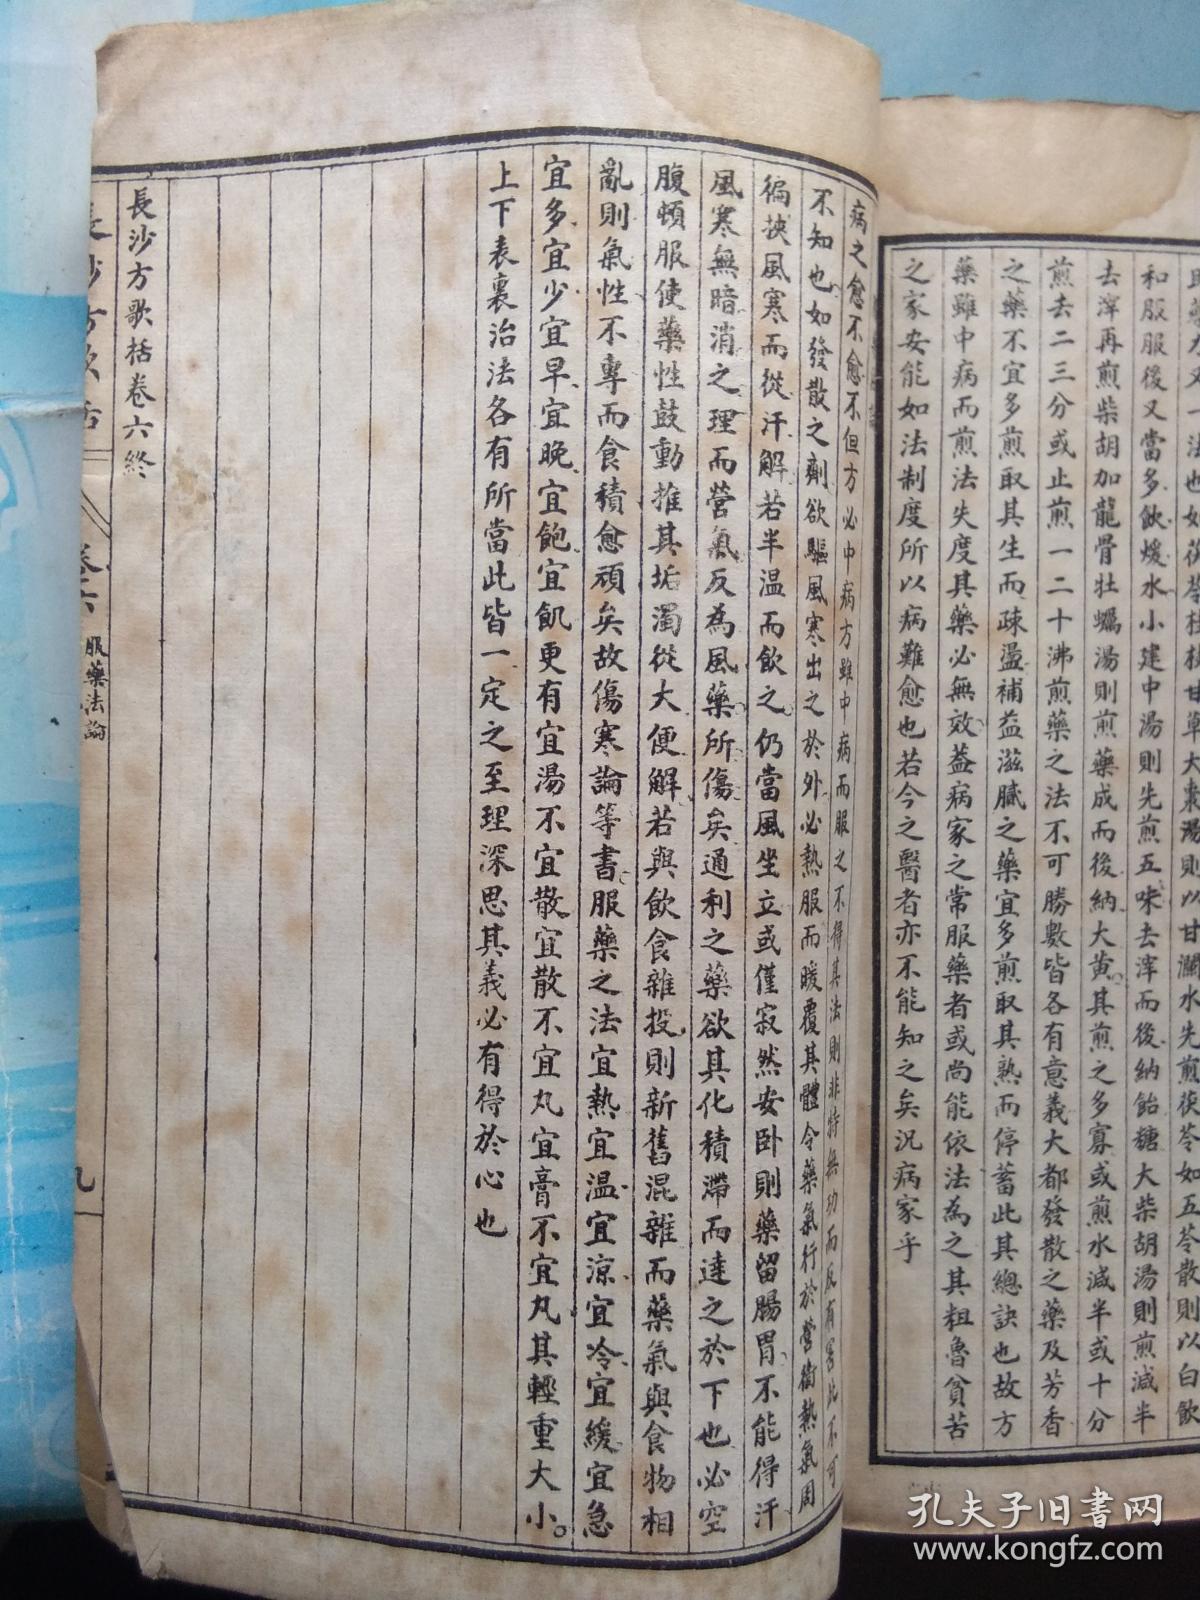 法也如茯苓桂枝甘草大棗湯則以甘瀾水先煎茯苓如五苓散則以白飲
和服服後又當多飲煖水小建中湯則先煎五味去滓而後納飴糖大柴胡湯則煎減半
去滓再煎柴胡加龍骨牡蠣湯則煎藥成而後納大黃其煎之多寡或煎水減半或十分
煎去二三分或止煎一二十沸煎藥之法不可勝數皆各有意義大都發散之藥及芳香
之藥不宜多煎取其生而疎盪補益滋膩之藥宜多煎取其熟而停蓄此其總訣也故方
藥雖中病而煎法失度其藥必無效蓋病家之常服藥者或尚能依法為之其粗魯貧苦
之家安能如法制度所以病難愈也若今之醫者亦不能知之矣況病家乎
病之愈不愈不但方必中病方雖中病而服之不得其法則非特無功而反有害此不可
不知也如發散之劑欲驅風寒出之於外必熱服而暖覆其體令藥氣行於營衛熱氣周
徧挾風寒而從汗解若半溫而飲之仍當風坐立或僅寂然安臥則藥留腸胃不能得汗
風寒無暗消之理而營氣反為風藥所傷矣通利之藥欲其化積滯而達之於下也必空
腹頓服使藥性鼓動推其垢濁從大便解若與飲食雜投則新舊混雜而藥氣與食物相
亂則氣性不專而食積愈頑矣故傷寒論等書服藥之法宜熱宜溫宜涼宜冷宜緩宜急
宜多宜少宜早宜晚宜飽宜飢更有宜湯不宜散宜散不宜丸宜膏不宜丸其輕重大小。
上下表裏治法各有所當此皆一定之至理深思其義必有得於心也
長沙方歌括卷六終
長沙方歌括 卷六 服藥法論 九
孔夫子旧书网
www.kongfz.com